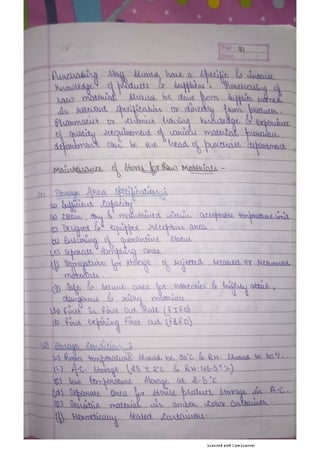 Page: 21
Date: / /
Purchasing staff should have a specific & intense
knowledge of products & suppliers. Purchasing of
raw material should be done from supplier named
its relevant specification or directly from producer.
Pharmacist or chemist having knowledge & experience
of quality requirement of various material purchase
department can be the head of purchase department
Maintenance of Stores for Raw Materials:-
(a) Storage Area Specification:
Sufficient Capacity
Clean, dry & maintained within acceptable temperature limit
Designed & equipped reception area
Ensuring of quarantine status
(e) Separate sampling area
(f) Segregation for storage of rejected, recalled or returned
materials
(g) Safe & secure area for narcotics & highly active,
dangerous & risky materials
First in First out Rule (FIFO)
First expiring First out (FEFO)
Storage Condition:
Room temperature should be 30°C & RH should be 60%.
A/C Storage (25 ± 2°C & RH-45-5°%)
low temperature storage at 2-8°C
(d) Separate area for sterile product storage in A-C
Sensitive material in amber color container
(f) Hermetically sealed containers.
Scanned with CamScanner